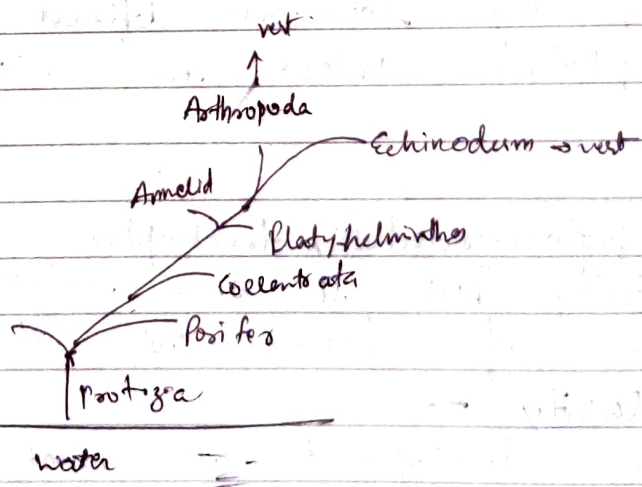 vest.
Arthropoda
Echinodum → vest
Annelid
Platyhelminthes
Coelentrata
Porifer
Protozoa
Water